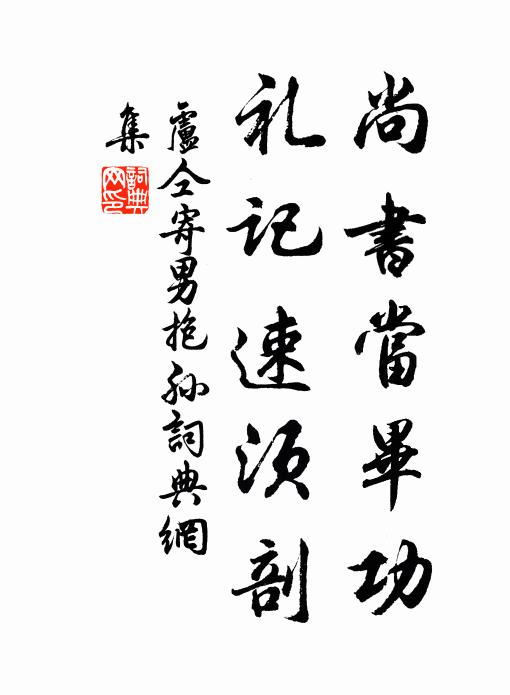 尚書當畢功
礼记速须剖
盧仝寄男抱孙詞典網
集
詞典
网印